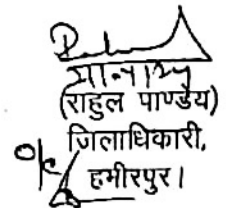 (राहुल पाण्डेय)
जिलाधिकारी,
हमीरपुर।